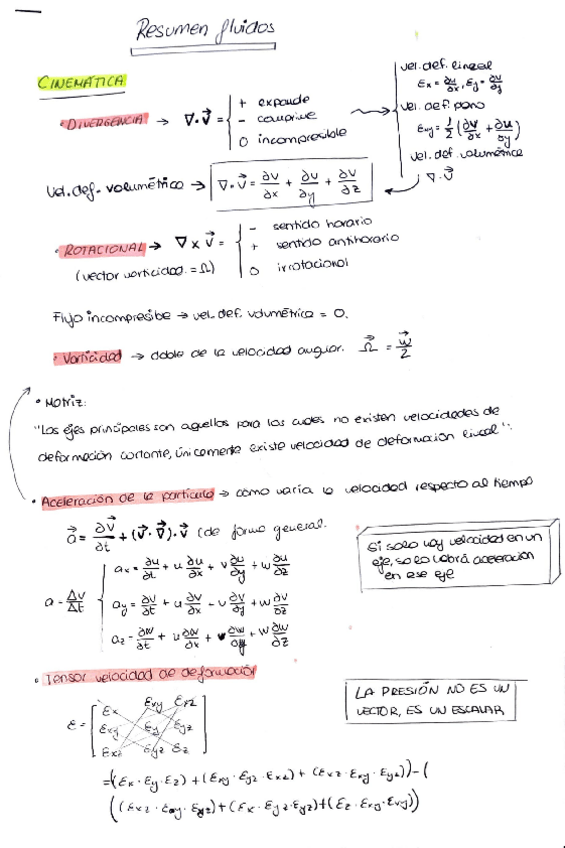 Resumen fluidos
CINEMÁTICA
• DIVERGENCIA → ∇·V⃗ = { + expande
- comprime
0 incompresible
vel. def. lineal
Ex = ∂u/∂x, Ey = ∂v/∂y
vel. def. plano
Exy = 1/2 (∂v/∂x + ∂u/∂y)
vel. def. volumétrica
∇·V⃗
Vel. def. volumétrico → ∇·V⃗ = ∂v/∂x + ∂v/∂y + ∂v/∂z
• ROTACIONAL → ∇ x V⃗ = { - sentido horario
+ sentido antihorario
0 irrotacional
(vector vorticidad = Ω)
Flujo incompresible → vel. def. volumétrica = 0.
• Vorticidad → doble de la velocidad angular. Ω⃗ = w⃗/2
• MOTRIZ:
"Los ejes principales son aquellos para los cuales no existen velocidades de
deformación cortante, únicamente existe velocidad de deformación lineal".
• Aceleración de la partícula → como varía la velocidad respecto al tiempo
a⃗ = ∂V⃗/∂t + (V⃗·∇⃗)·V⃗ (de forma general.
Si solo hay velocidad en un
eje, solo habrá aceleración
en ese eje
a = Δv/Δt
ax = ∂u/∂t + u ∂u/∂x + v ∂u/∂y + w ∂u/∂z
ay = ∂v/∂t + u ∂v/∂x - v ∂v/∂y + w ∂v/∂z
az = ∂w/∂t + u ∂w/∂x + v ∂w/∂y + w ∂w/∂z
• Tensor velocidad de deformación
LA PRESIÓN NO ES UN
VECTOR, ES UN ESCALAR
Ex Exy Exz
E = [ Exy Ey Eyz ]
Exz Eyz Ez
=(Ex · Ey · Ez) + (Exy · Eyz · Exz) + (Exz · Exy · Eyz)) - (
((Exz · Eay · Eyz) + (Ex · Eyz · Eyz) + (Ez · Exy · Exy))